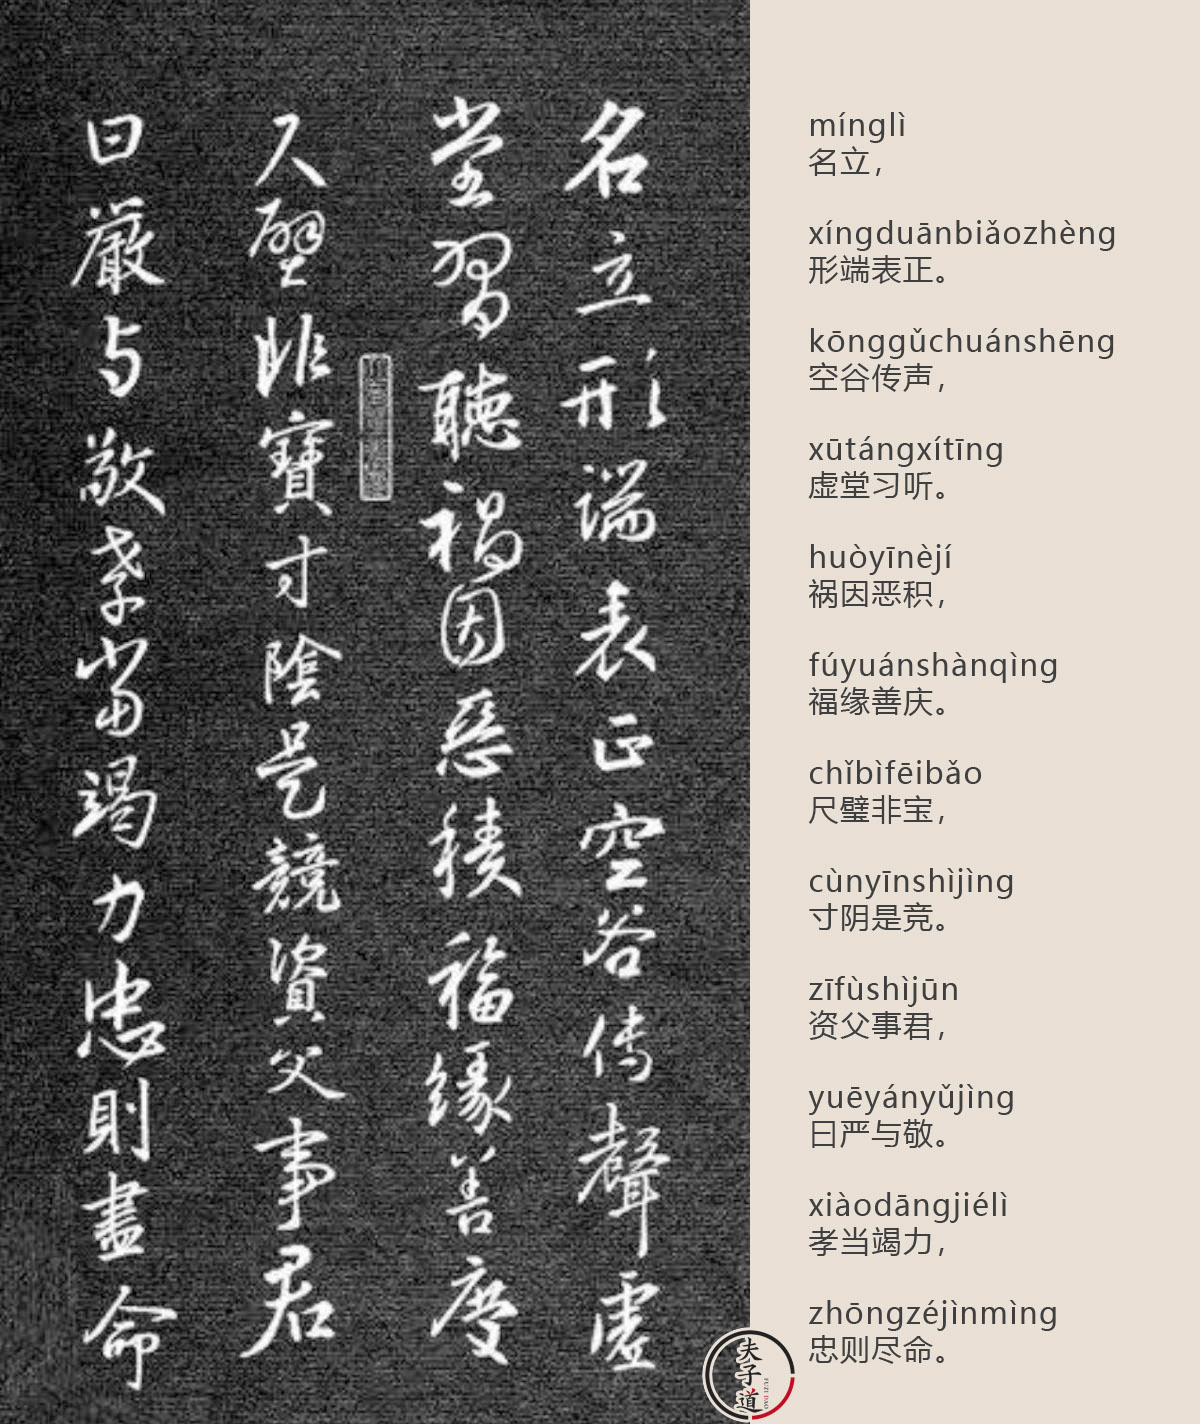 名立形端表正空谷传聲虚
堂習聽禍因惡積福縁善慶
尺璧非寶寸陰是競資父事君
曰嚴与敬孝當竭力忠則盡命
mínglì
名立，
xíngduānbiǎozhèng
形端表正。
kōnggǔchuánshēng
空谷传声，
xūtángxítīng
虚堂习听。
huòyīnèjí
祸因恶积，
fúyuánshànqìng
福缘善庆。
chǐbìfēibǎo
尺璧非宝，
cùnyīnshìjìng
寸阴是竞。
zīfùshìjūn
资父事君，
yuēyányǔjìng
曰严与敬。
xiàodāngjiélì
孝当竭力，
zhōngzéjìnmìng
忠则尽命。
夫子道